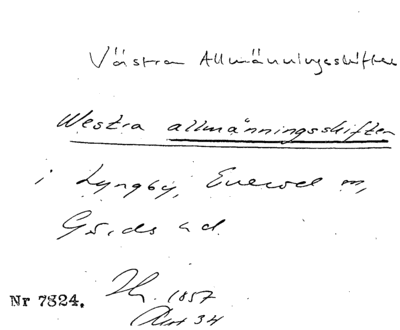 Västra Allmänningsskiften
Westra allmänningsskiften
i Lyngby, Everöd m,
Gärds hd.
1857
Akt 34
Nr 7824.